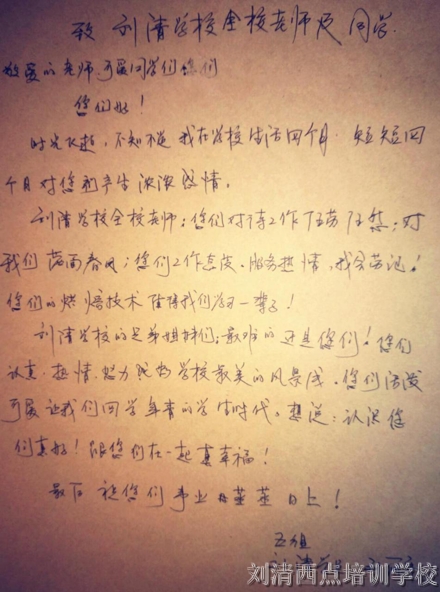 致 刘清学校全校老师及同学
敬爱的老师、可爱同学们您们
您们好！
时光飞越，不知不觉我在学校生活四个月，短短四
个月对您们产生浓浓感情。
刘清学校全校老师：您们对待工作任劳任怨；对
我们满面春风；您们工作态度、服务热情，我会莫忘！
您们的烘焙技术值得我们学习一辈子！
刘清学校的兄弟姐妹们：最难的还是您们！您们
认真、热情、努力成为学校最美的风景线。您们活泼
可爱让我们回学年青的学生时代。想说：认识您
们真好！跟您们在一起真幸福！
最后祝您们事业蒸蒸日上！
五组
刘清西点培训学校